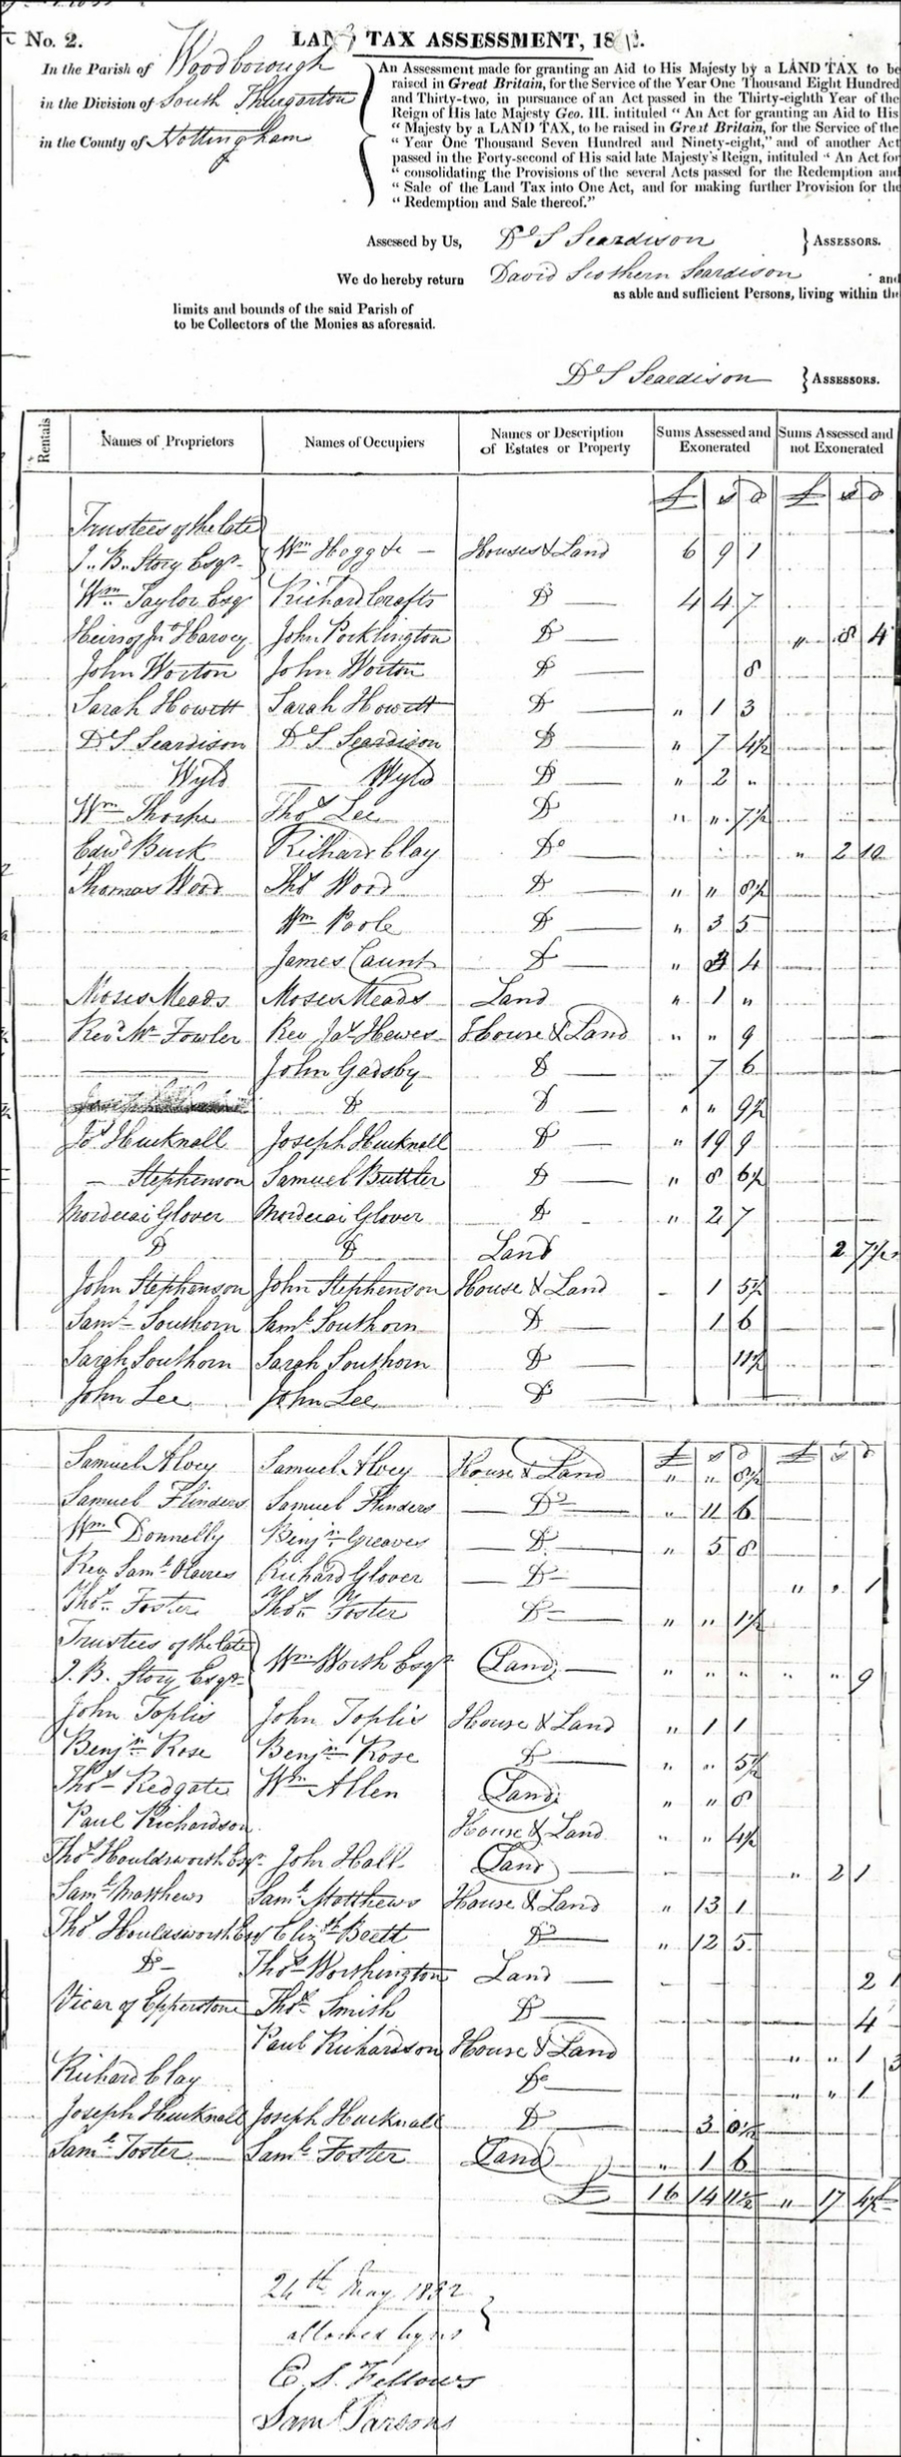 No. 2.
LAND TAX ASSESSMENT, 18
In the Parish of Woodborough
in the Division of South Thurgarton
in the County of Nottingham
An Assessment made for granting an Aid to His Majesty by a LAND TAX to be
raised in Great Britain, for the Service of the Year One Thousand Eight Hundred
and Thirty-two, in pursuance of an Act passed in the Thirty-eighth Year of the
Reign of His late Majesty Geo. III. intituled "An Act for granting an Aid to His
"Majesty by a LAND TAX, to be raised in Great Britain, for the Service of the
"Year One Thousand Seven Hundred and Ninety-eight," and of another Act
passed in the Forty-second of His said late Majesty's Reign, intituled "An Act for
"consolidating the Provisions of the several Acts passed for the Redemption and
"Sale of the Land Tax into One Act, and for making further Provision for the
"Redemption and Sale thereof."
Assessed by Us, D. S Seardison } ASSESSORS.
We do hereby return David Scothern Seardison and
as able and sufficient Persons, living within the
limits and bounds of the said Parish of
to be Collectors of the Monies as aforesaid.
D S Seardison } ASSESSORS.
Rentals Names of Proprietors Names of Occupiers Names or Description of Estates or Property Sums Assessed and Exonerated Sums Assessed and not Exonerated
£ s d £ s d
Trustees of the late
J. B. Story Esqr. } Wm Hogg &c - Houses & Land 6 9 1
Wm Taylor Esq Richard Crofts Do 4 4 7
Heirs of Jno Harvey John Pocklington Do " 8 4
John Worton John Worton Do 8
Sarah Howitt Sarah Howitt Do " 1 3
D S Seardison D S Seardison Do " 7 4½
Wyld Wyld Do " 2 "
Wm Thorpe Thos Lee Do " " 7½
Edwd Buck Richard Clay Do " 2 10
Thomas Wood Thos Wood Do " " 8½
Wm Poole Do " 3 5
James Caunt Do " 3 4
Moses Meads Moses Meads Land " 1 "
Revd Mr Fowler Rev Jas Hewes House & Land " " 9
John Gadsby Do 7 6
Do Do " " 9½
Jos Hucknall Joseph Hucknall Do " 19 9
- Stephenson Samuel Buttler Do " 8 6½
Mordecai Glover Mordecai Glover Do " 2 7
Do Do Land 2 7½
John Stephenson John Stephenson House & Land - 1 5½
Saml Southorn Saml Southorn Do 1 6
Sarah Southorn Sarah Southorn Do 11½
John Lee John Lee Do
£ s d £ s d
Samuel Alvey Samuel Alvey House & Land " " 8½
Samuel Flinders Samuel Flinders Do " 11 6
Wm Donnelly Benjn Greaves Do " 5 8
Rev Saml Oliver Richard Glover Do " " 1
Thos Foster Thos Foster Do " " 1½
Trustees of the late
J. B. Story Esqr. } Wm Worth Esqr Land " " " " " 9
John Toplis John Toplis House & Land " 1 1
Benjn Rose Benjn Rose Do " " 5½
Thos Redgate Wm Allen Land " " 8
Paul Richardson House & Land " " 4½
Thos Houldsworth Esqr John Hall Land " 2 1
Saml Matthews Saml Matthews House & Land " 13 1
Thos Houldsworth Esq Elizth Brett Do " 12 5
Do Thos Worthington Land 2 1
Vicar of Epperstone Thos Smith Do 4
Paul Richardson House & Land " " 1
Richard Clay Do " " 1
Joseph Hucknall Joseph Hucknall Do 3 0½
Saml Foster Saml Foster Land " 1 6
£ 16 14 11½ " 17 4½
24th May 1832
allowed by us
E. S. Fellows
Saml Parsons